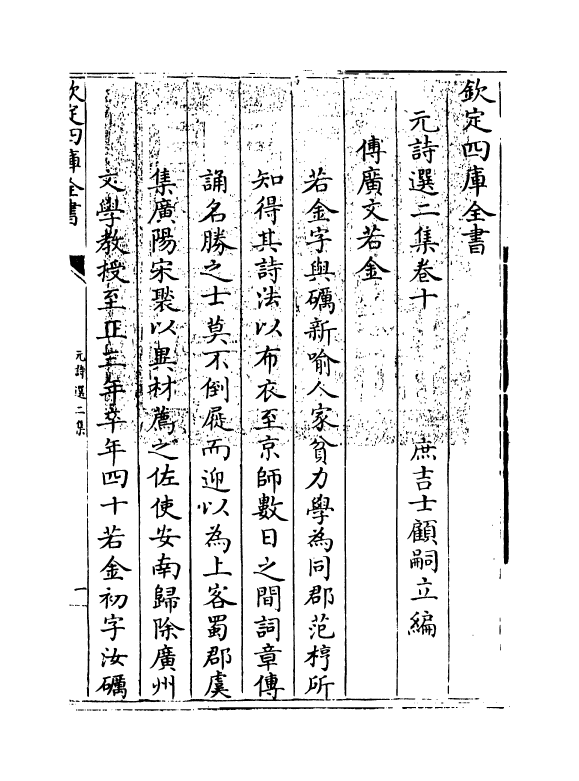 欽定四庫全書
元詩選二集卷十
庶吉士顧嗣立編
傅廣文若金
若金字與礪新喻人家貧力學為同郡范梈所
知得其詩法以布衣至京師數日之間詞章傳
誦名勝之士莫不倒屣而迎以為上客蜀郡虞
集廣陽宋褧以異材薦之佐使安南歸除廣州
文學教授至正三年卒年四十若金初字汝礪
欽定四庫全書
元詩選二集
一